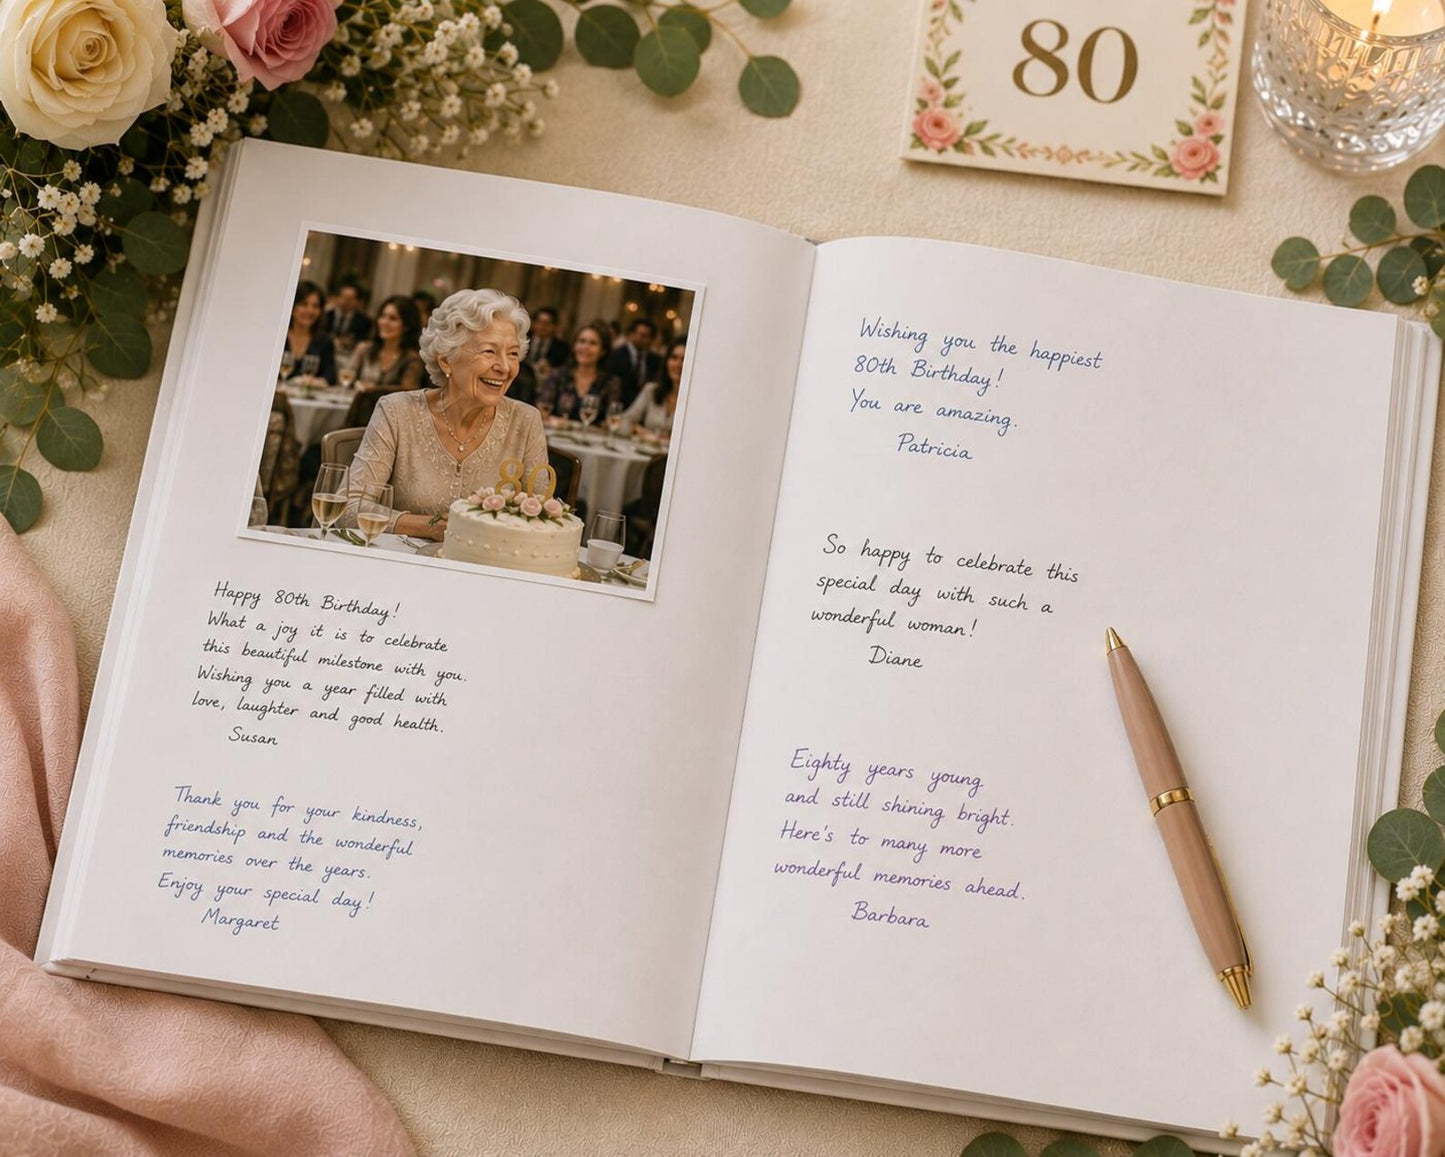 80
80
Happy 80th Birthday!
What a joy it is to celebrate
this beautiful milestone with you.
Wishing you a year filled with
love, laughter and good health.
Susan
Thank you for your kindness,
friendship and the wonderful
memories over the years.
Enjoy your special day!
Margaret
Wishing you the happiest
80th Birthday!
You are amazing.
Patricia
So happy to celebrate this
special day with such a
wonderful woman!
Diane
Eighty years young
and still shining bright.
Here's to many more
wonderful memories ahead.
Barbara